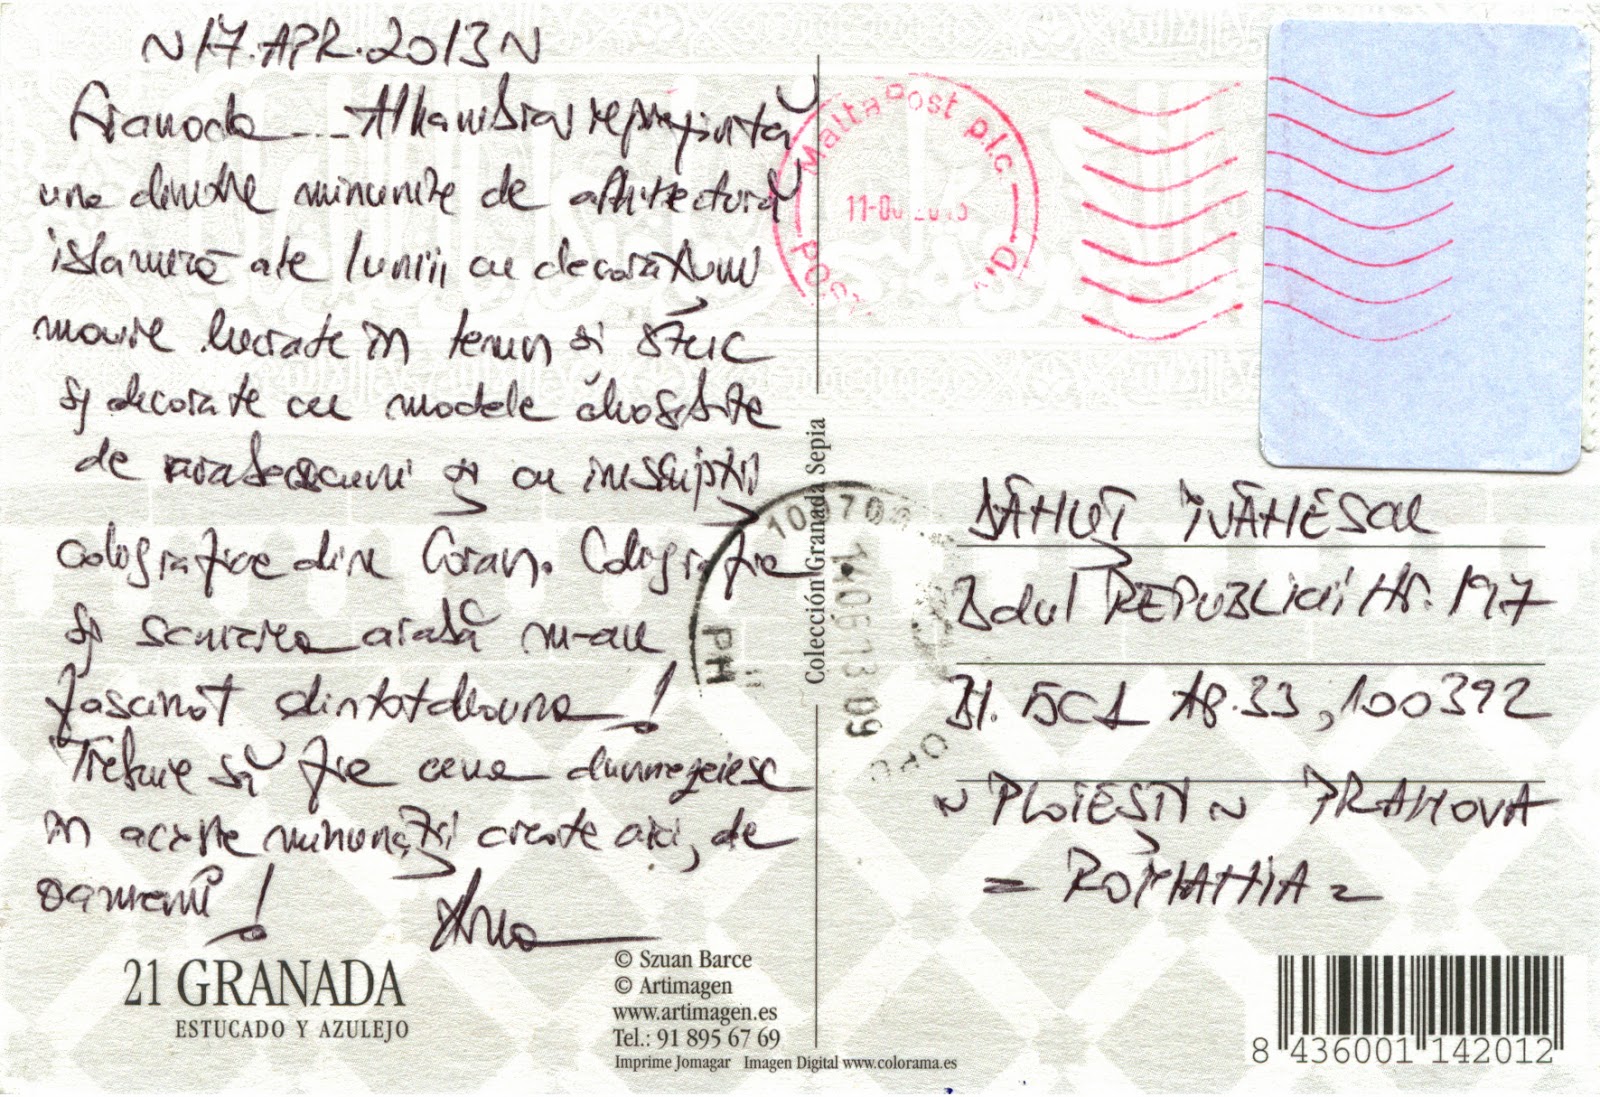 ~ 17.APR.2013 ~
Granada... Alhambra reprezintă
una dintre minunile de arhitectură
islamică ale lumii cu decorațiuni
maure lucrate în lemn și stuc
și decorate cu modele deosebite
de arabescuri și cu inscripții
caligrafice din Coran. Caligrafia
și scrierea arabă m-au
fascinat dintotdeauna!
Trebuie să fie ceva dumnezeiesc
în aceste minunății create aici, de
oameni!
21 GRANADA
ESTUCADO Y AZULEJO
© Szuan Barce
© Artimagen
www.artimagen.es
Tel.: 91 895 67 69
Imprime Jomagar Imagen Digital www.colorama.es
Colección Granada Sepia
MaltaPost p.l.c.
DĂNUȚ IVĂNESCU
Bdul REPUBLICII Nr. 197
Bl. 5C1 AP.33, 100392
~ PLOIEȘTI ~ PRAHOVA
= ROMÂNIA =
PH
14.06.13 09
8 436001 142012